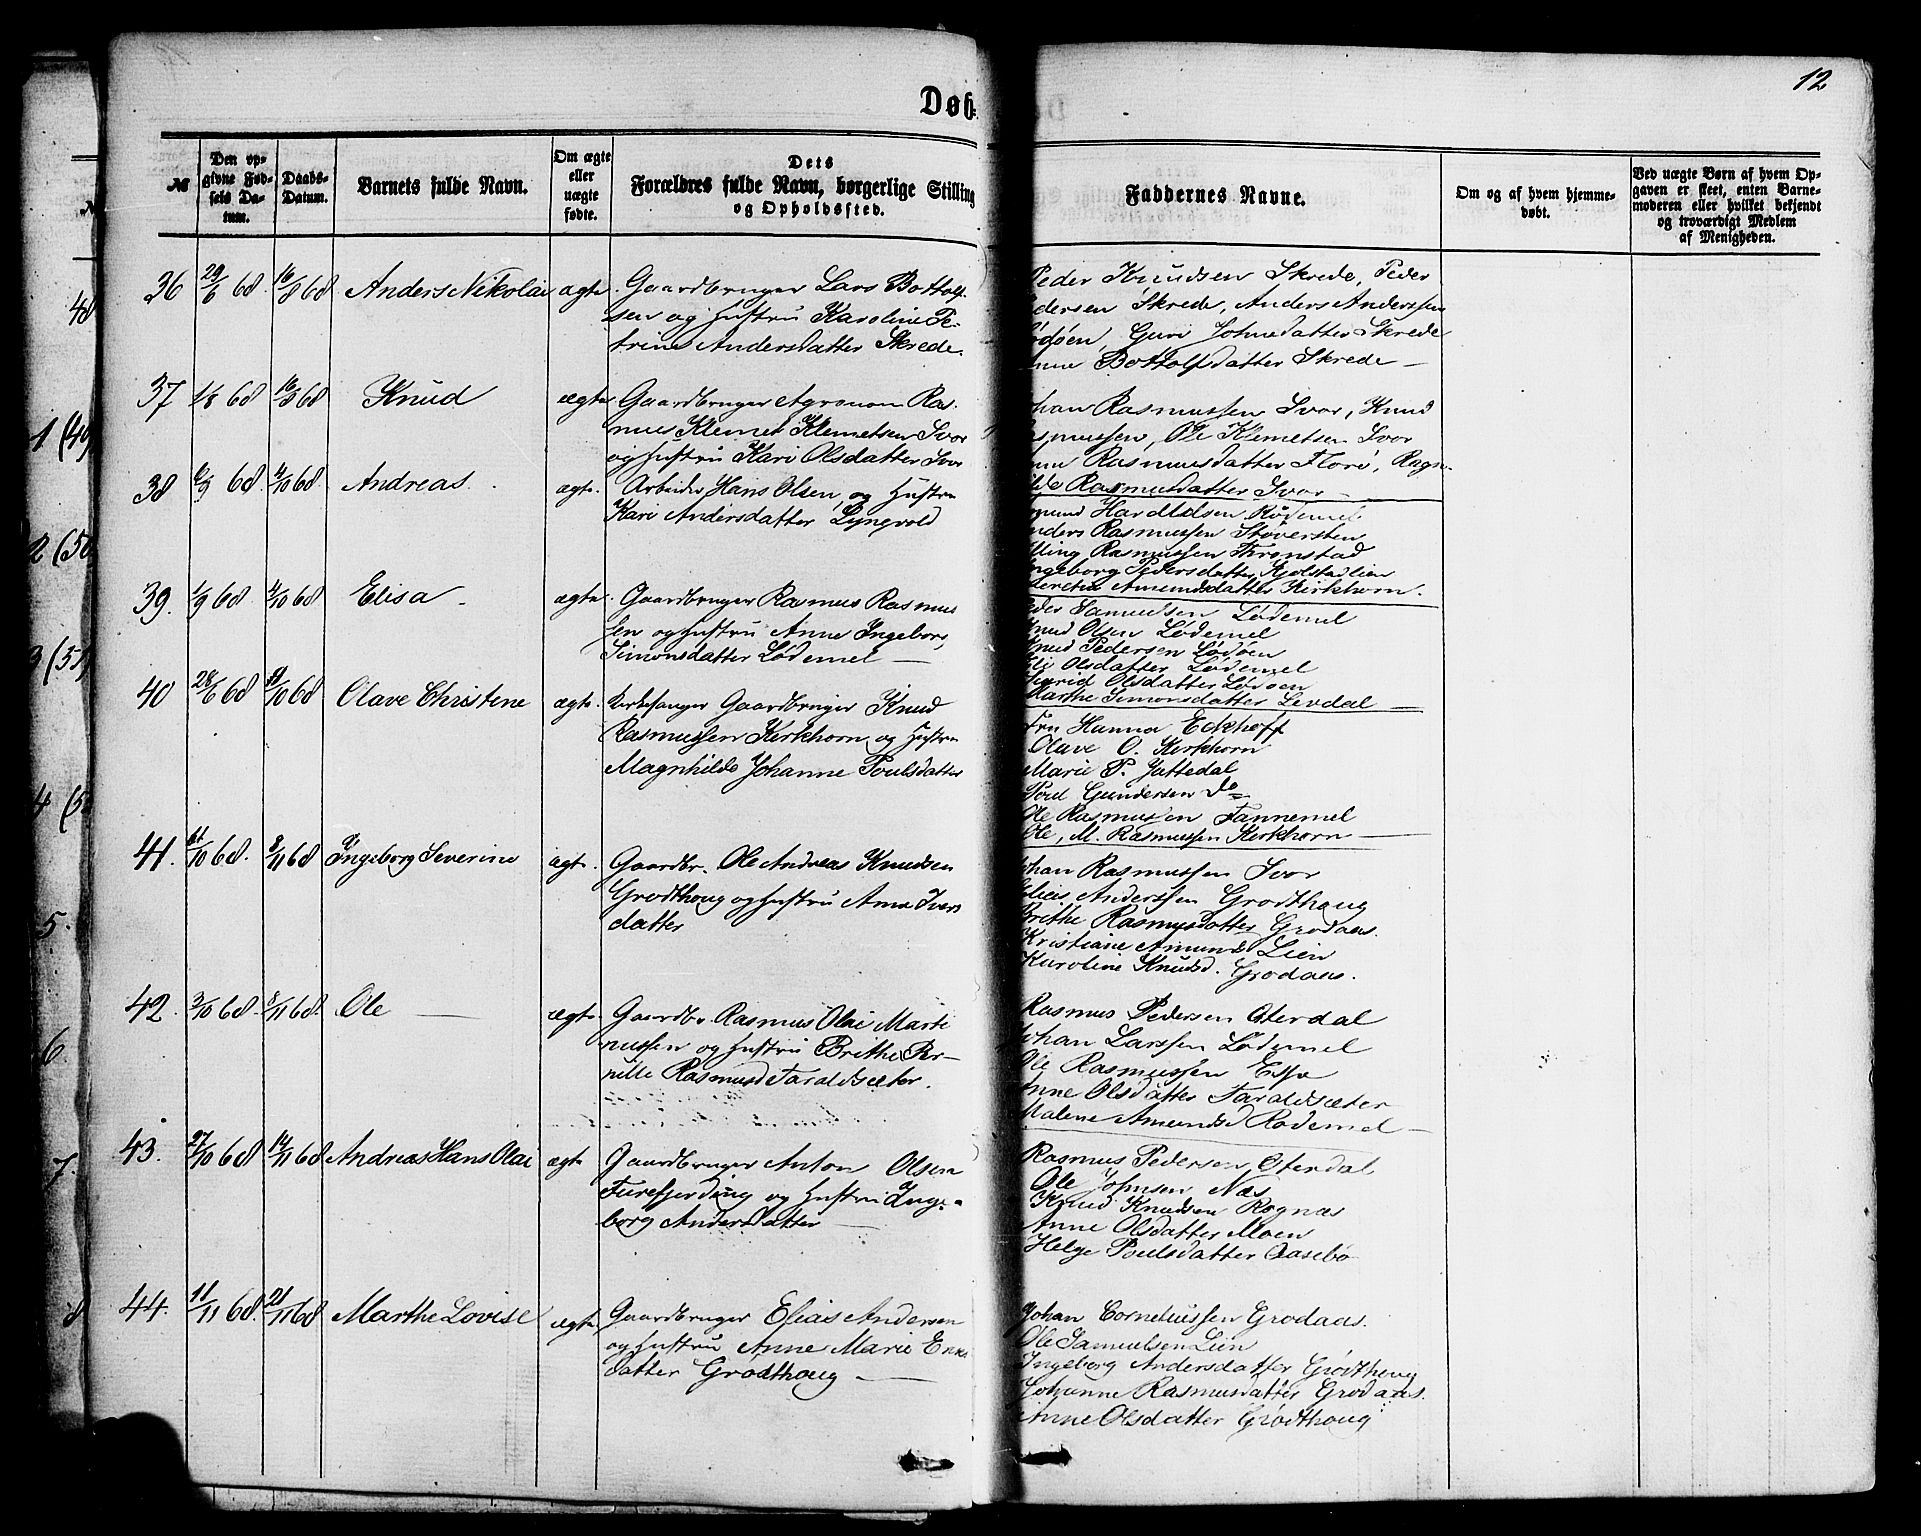 12
Døb
№
Den op-
givne Fød-
sels Da-
tum.
Daabs-
Datum.
Barnets fulde Navn.
Om ægte
eller
uægte
fødte.
Dets
Forældres fulde Navn, borgerlige Stilling
og Opholdssted.
Faddernes Navne.
Om og af hvem hjemme-
døbt.
Ved uægte Børn af hvem Op-
gaven er skeet, enten Barne-
moderen eller hvilket bekjendt
og troværdigt Medlem
af Menigheden.
36 29/6 68 16/8 68 Anders Nikolai ægte Gaardbruger Lars Bottolf-
sen og Hustru Karoline Pe-
trine Andersdatter Skrede.
Peder Knudsen Skrede, Peder
dersen Skrede, Anders Anderssen
Guri Johnsdatter Skrede
Bottolfsdatter Skrede —
37 1/8 68 16/8 68 Knud ægte Gaardbruger Agronom Ras-
mus Klemet Klemetsen Svor
og Hustru Kari Olsdatter Svor
Rasmussen Svor, Knud
Ole Klemetsen Svor
Rasmusdatter Florö, Ragn-
Rasmusdatter Svor —
38 6/9 68 4/10 68 Andreas. ægte. Arbeider Hans Olsen og Hustru
Kari Andersdatter Lyngvold
Rødemel
Rasmussen Støversten
Rasmussen Thronstad
Pedersdatter Kjølstadlien
Amundsdatter Kirkhorn.
39. 1/9 68 4/10 68 Elisa — ægte. Gaardbruger Rasmus Rasmus
sen og Hustru Anne Ingeborg
Simonsdatter Lødemel —
Samuelsen Lødemel
Olsen Lødemel
Pedersen Lødøen
Olsdatter Lødemel
Olsdatter Lødøen
Marthe Simonsdatter Levdal —
40 28/6 68 11/10 68 Olave Christine ægte. Kirkesanger Gaardbruger Knud
Rasmussen Kirkhorn og Hustru
Magnhilde Johanne Poulsdatter
Fru Hanna Eckhoff
Olave O. Kirkhorn
Marie P.
Gundersen Do
Ole Rasmussen Tannemel
Ole, M. Rasmussen Kirkhorn —
41. 11/10 68. 8/11 68 Ingeborg Severine ægte. Gaardbr. Ole Andreas Knudsen
Grodthoug og Hustru Anne Ivers
datter
Rasmussen Svor
Anderssen Grodthoug
Brithe Rasmusdatter Grodaas.
Kristiane Amunds Lien
Karoline Knudsd. Grodaas.
42. 3/10 68. 8/11 68. Ole — ægte. Gaardbr. Rasmus Olai Marti
nussen og Hustru Brithe Per-
nille Rasmusd Taraldsæter.
Rasmus Pedersen Oterdal
Johan Larssen Lødemel
Ole Rasmussen
Anne Olsdatter Taraldsæter
Malene Amundsd Rødemel —
43. 27/10 68 14/11 68 Andreas Hans Olai ægte Gaardbruger Anton Olsen
Furefjerding og Hustru Inge-
borg Andersdatter —
Rasmus Pedersen Oterdal
Ole Johnsen Næs
Knud Knudsen Rognæs
Anne Olsdatter Moen
Helge Poulsdatter Aasebø
44. 11/11 68. 21/11 68 Marthe Lovise ægte. Gaardbruger Elias Andersen
og Hustru Anne Marie
datter Grodthoug —
Johan Corneliussen Grodaas.
Ole Samuelsen Lien
Ingeborg Andersdatter Grødthoug
Johanne Rasmusdatter Grodaas.
Anne Olsdatter Grødthoug